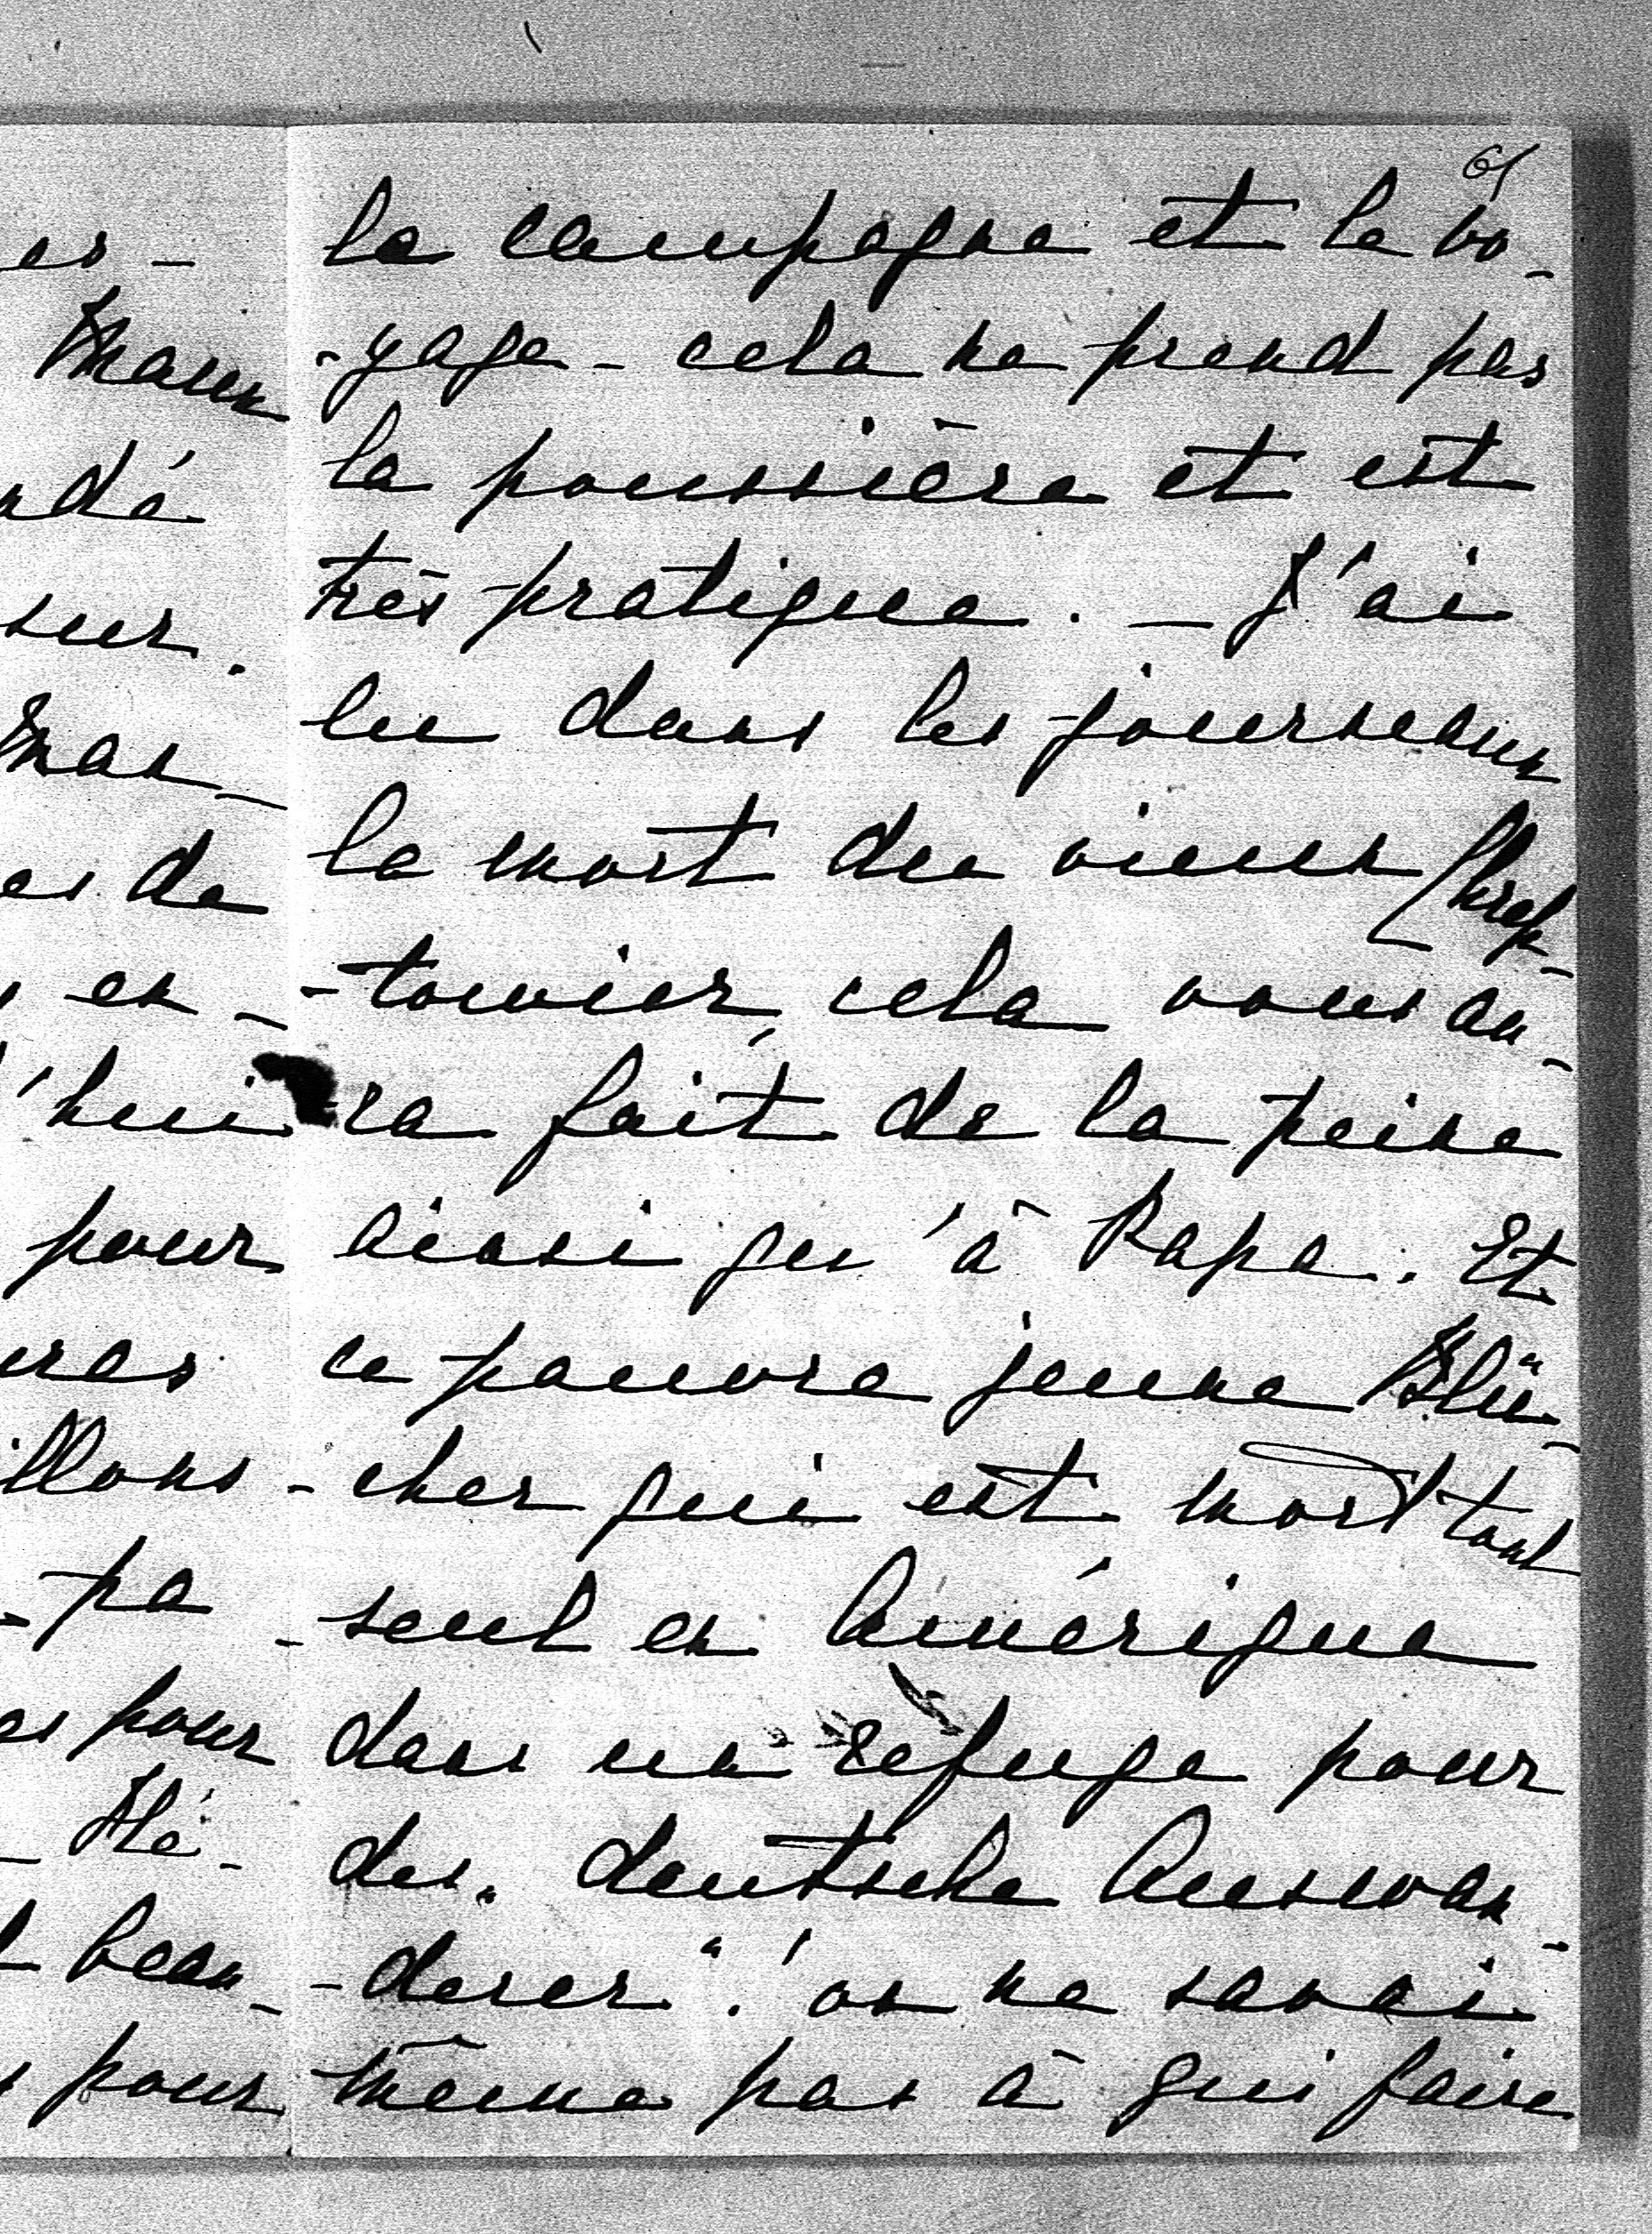 es -
Maxm
ndé
sur.
mas-
es de
en -
'hui
pour
uras
illons
- pa
es pour
_ Hé-
beau-
pour
61
la campagne et le vo-
-yage - cela ne prend pas
la poussière et est
très pratique. - J'ai
lu dans les journeaux
la mort du vieux Chrep-
-towier, cela vous au-
-ra fait de la peine
ainsi qu'à Papa. Et
ce pauvre jeune Blü-
-cher qui est mort tout
- seul en Amérique
dans un réfuge pour
des „deutsche Auswan-
-derer“! on ne savai
même pas à qui faire